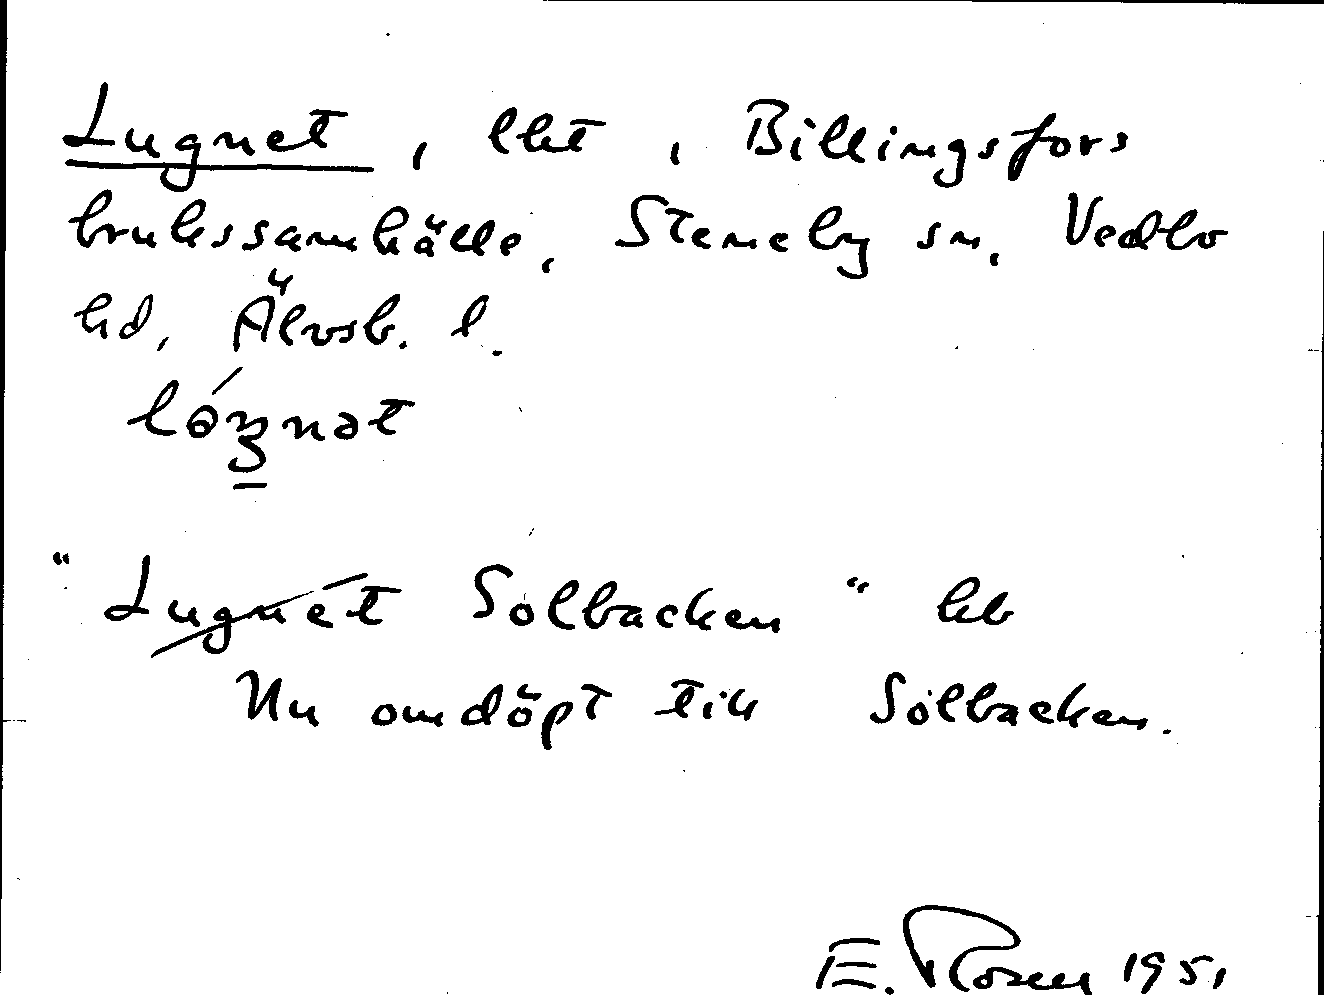 Lugnet, lht, Billingsfors
brukssamhälle, Steneby sn, Vedbo
hd, Älvsb. l.
"Lugnet Solbacken" hb
Nu omdöpt till Solbacken.
E. Rosen 1951